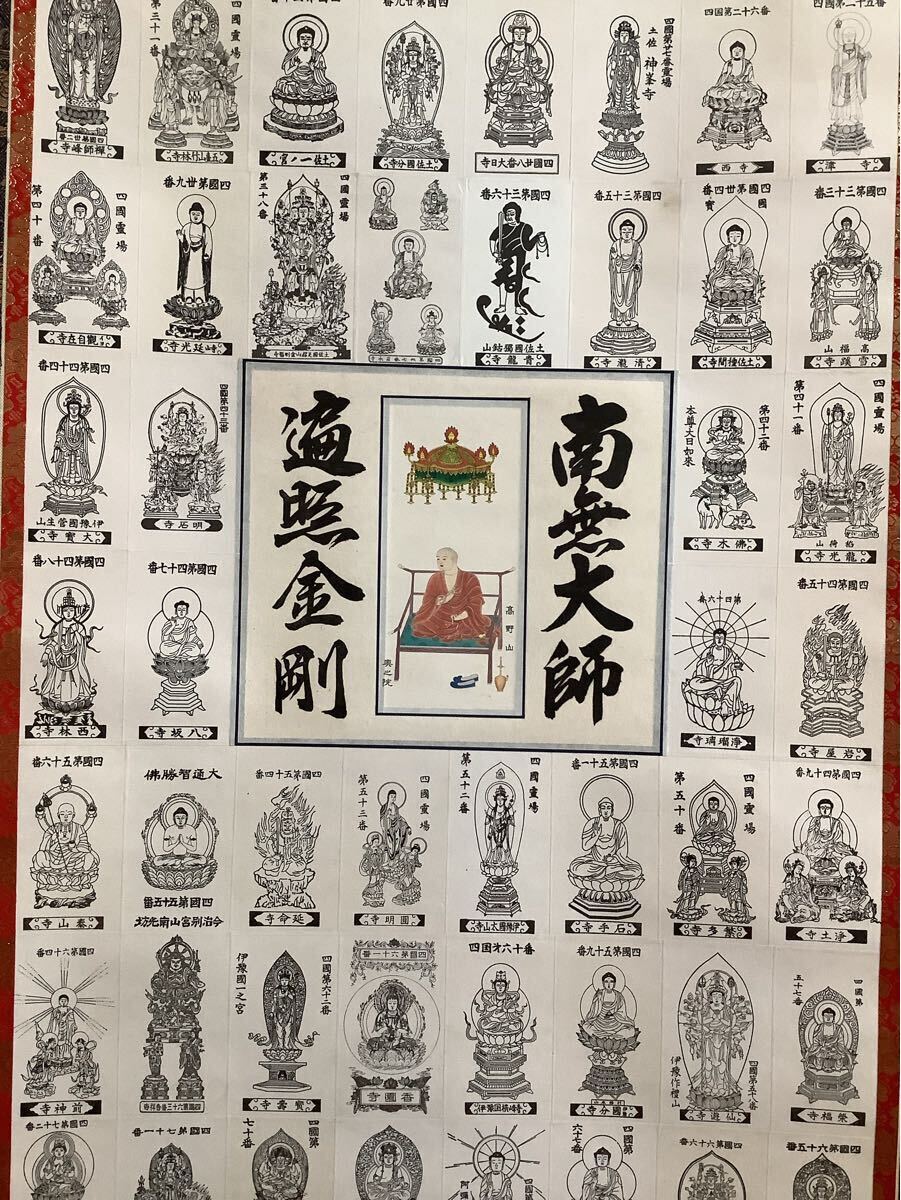 四國第二十五番
津寺
四国第二十六番
西寺
四國第廿七番霊場
土佐 神峯寺
四國廿八番大日寺
土佐國分寺
土佐一ノ宮
四國霊場
第三十一番
五臺山竹林寺
四國第丗二番
禅師峰寺
四國第三十三番
高福山
雪蹊寺
四國第丗四番
國寳
土佐種間寺
四國第三十五番
清瀧寺
四國第三十六番
土佐國獨鈷山
青龍寺
四國霊場
第三十八番
土佐國足摺山金剛福寺
四國第丗九番
寺山延光寺
四國霊場
第四十番
觀自在寺
四國霊場
第四十一番
稻荷山
龍光寺
第四十二番
本尊大日如來
佛木寺
南無大師
高野山
奥之院
遍照金剛
四國第四十三番
明石寺
四國第四十四番
伊豫國菅生山
大寳寺
四國第四十五番
岩屋寺
第四十六番
淨瑠璃寺
四國第四十七番
八坂寺
四國第四十八番
西林寺
四國第四十九番
淨土寺
四國霊場
第五十番
繁多寺
四國第五十一番
石手寺
四國霊場
第五十二番
伊豫國太山寺
四國霊場
第五十三番
圓明寺
四國第五十四番
延命寺
大通智勝佛
四國第五十五番
今治別宮山南光坊
四國第五十六番
泰山寺
四國第
五十七番
栄福寺
四國第五十八番
伊豫作禮山
仙遊寺
四國第五十九番
國分寺
四国才六十番
伊豫国横峰寺
四國第六十一番
香園寺
四國第六十二番
伊豫國一之宮
寳壽寺
四國第六十三番吉祥寺
四國第六十四番
前神寺
四國第六十五番
四國第六十六番
四國第
六十七番
四國第
七十番
四國第七十一番
四國第七十二番